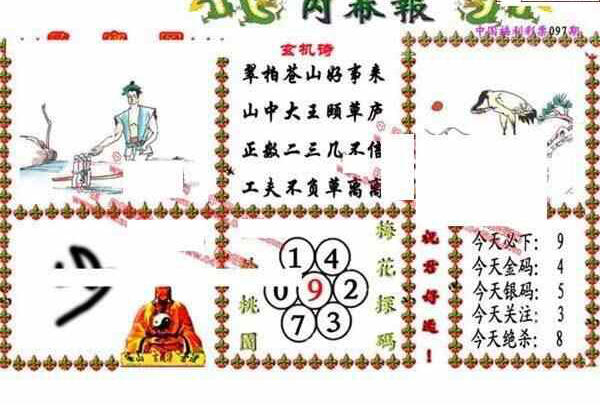 内幕報
中国福利彩票097期
玄机诗
翠柏苍山好事来
山中大王顾草庐
正数二三几不信
工夫不负草离离
梅花探码
桃園
1 4
0 9 2
7 3
祝君好运！
今天必下： 9
今天金码： 4
今天银码： 5
今天关注： 3
今天绝杀： 8